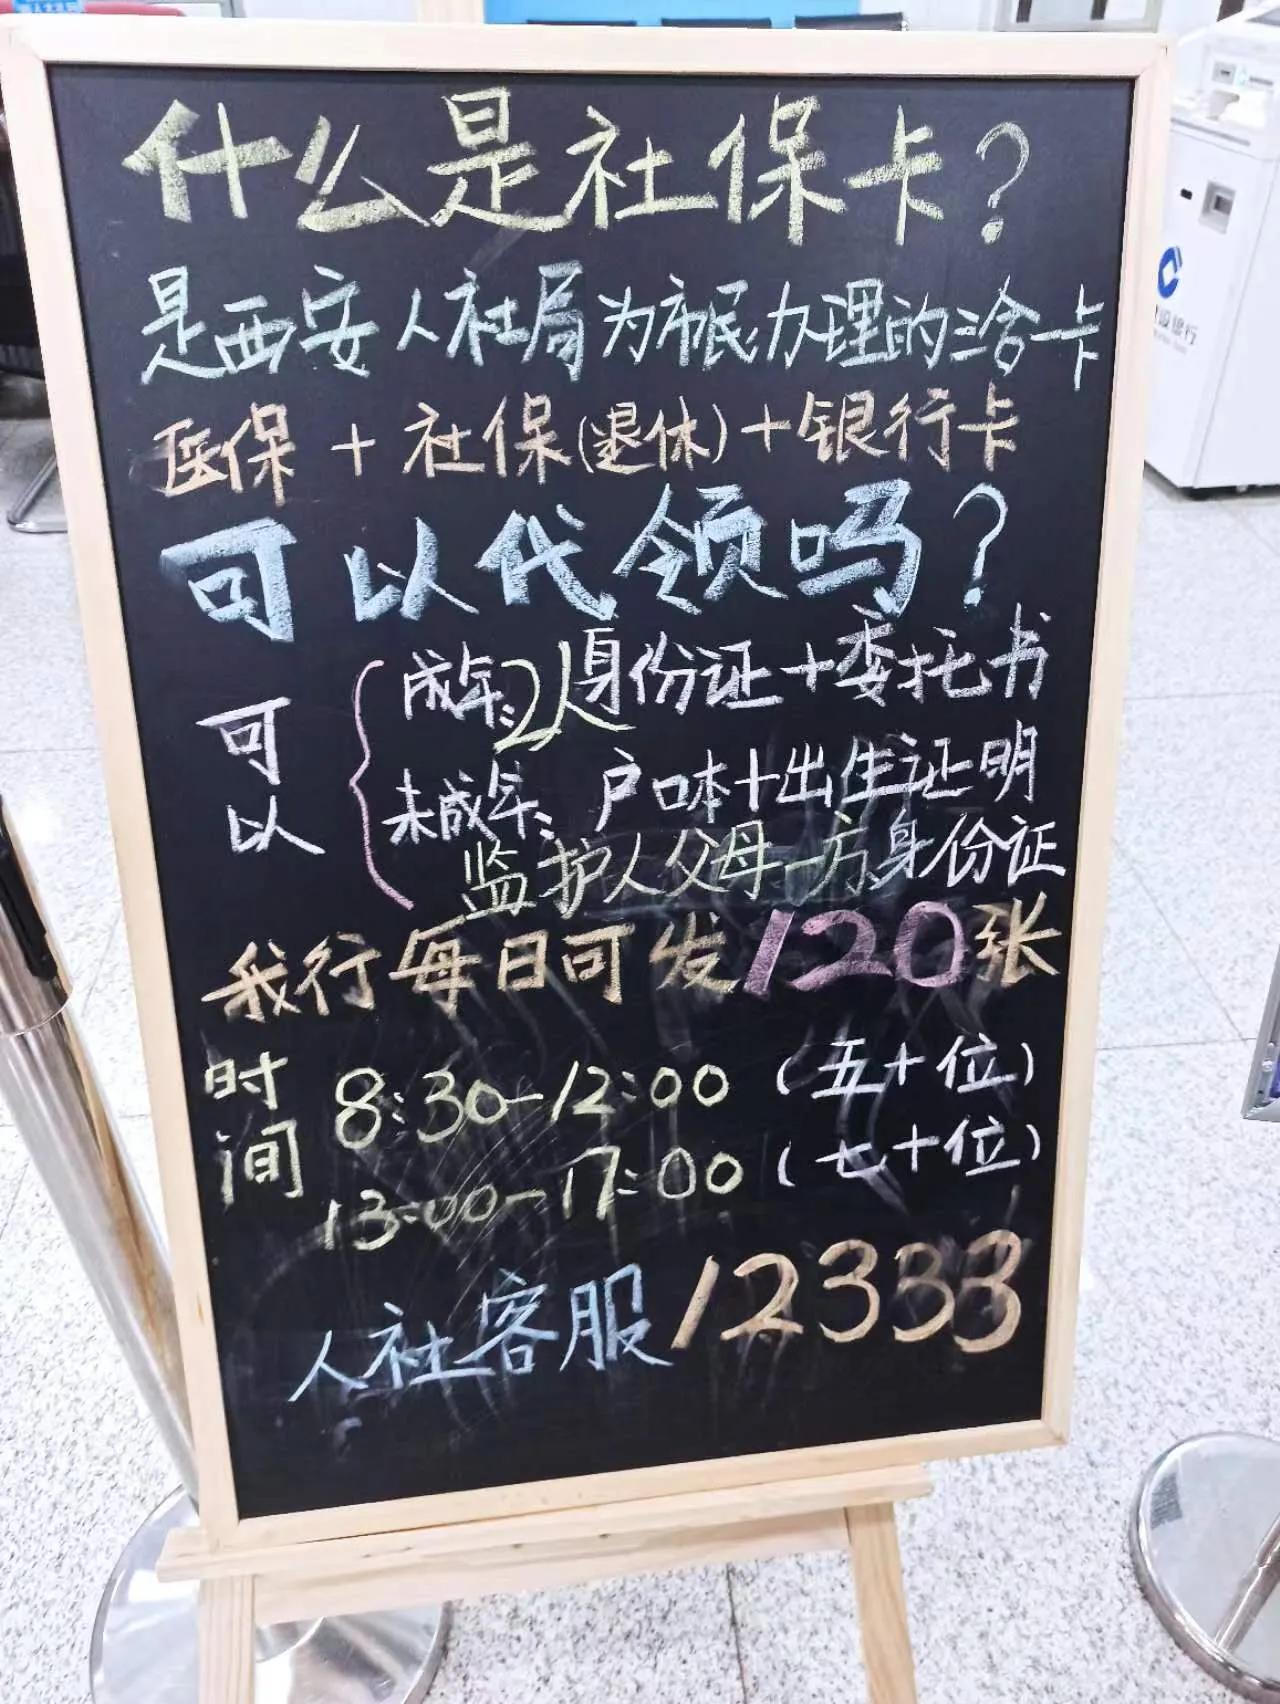 什么是社保卡?
是西安人社局为市民办理的三合一卡
医保+社保(退休)+银行卡
可以代领吗?
可以
成年:2人身份证+委托书
未成年:户口本+出生证明
监护人父母一方身份证
我行每日可发120张
时间
8:30-12:00 (五十位)
13:00-17:00 (七十位)
人社客服12333
银行